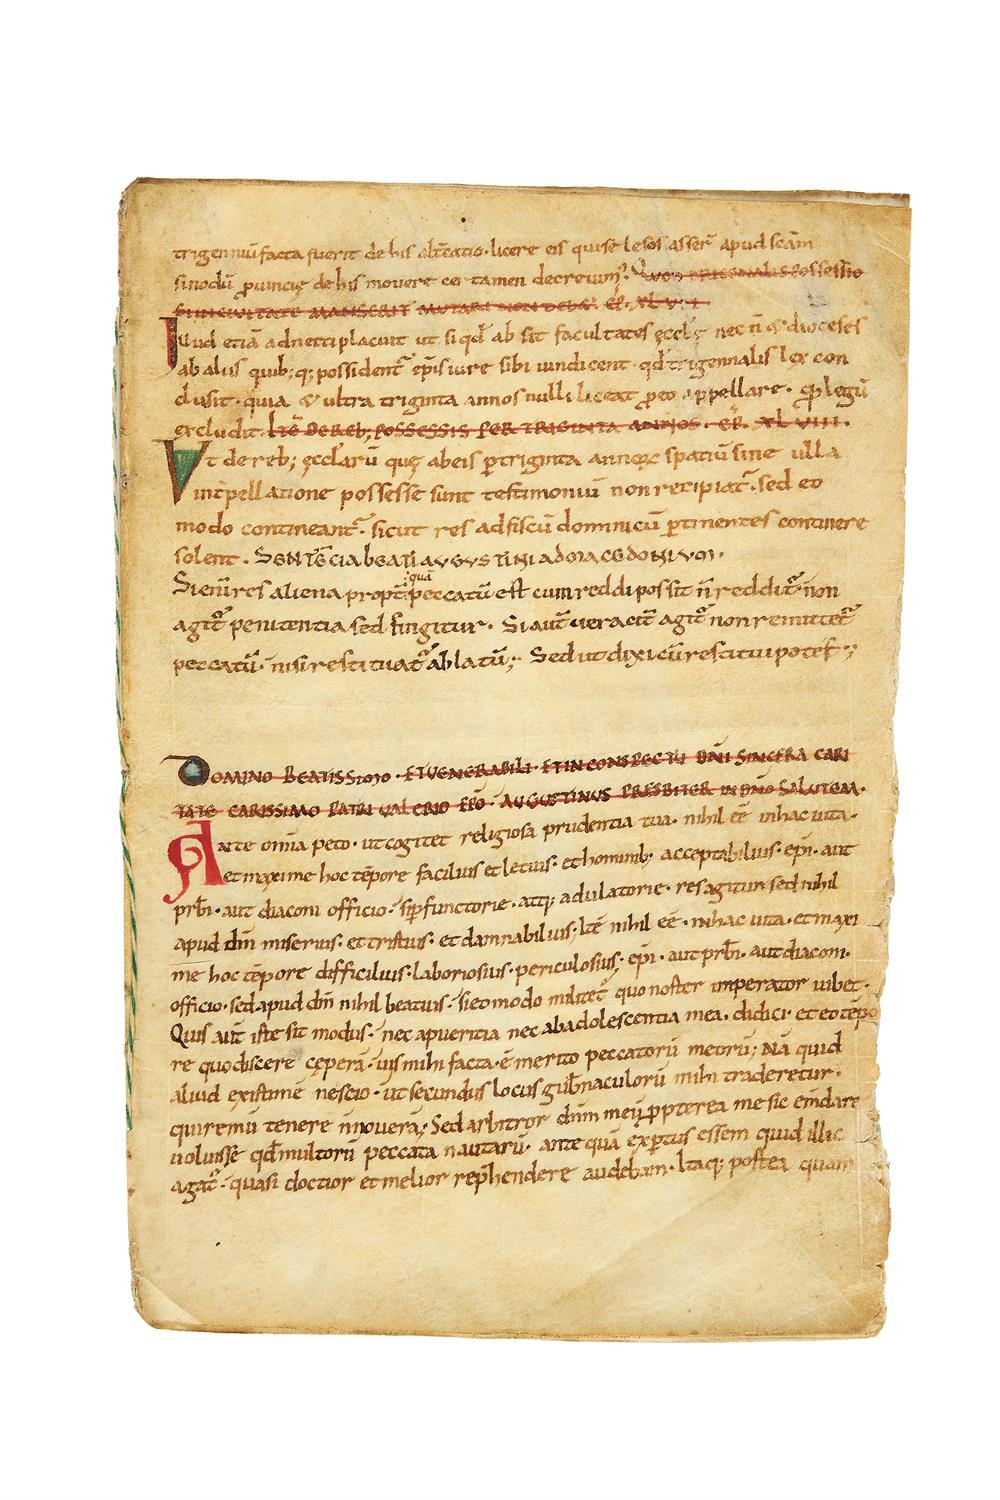 trigenniū facta fuerit de his alt̄catio · licere eis qui se lesos asser̄ apud scām
sinodū ꝓuincię de his movere certamen decretum; Quod tricennalis possessio
ab aliis quib; q; possident̄ ep̄is iure sibi uindicent · qd̄ trigennalis lex con
clusit · quia & ultra triginta annos nulli liceat ꝓ eo appellare · legū
excludit. Itē de reb; possessis per triginta annos. XLVIII.
Vt de reb; ęcclarū quę ab eis ꝑ triginta annorū spatiū sine ulla
int̄pellatione possesse sunt testimoniū non recipiat̄ · sed eo
modo contineant̄ · sicut res ad fiscū dominicū ꝑtinentes continere
solent. Sentētia beati Augustini ad Macedonium.
Si eni res aliena propt̄ quā peccatū est cum reddi possit n̄ reddit̄ · non
agit̄ penitentia sed fingitur. Si aut̄ veracit̄ agit̄ non remittet̄
peccatū · nisi restituat̄ ablatū; Sed ut dixi cū restitui potest;
Domino beatissimo · et venerabili · et in conspectu dn̄i sincera cari
tate carissimo patri Valerio ep̄o · Augustinus presbiter in dn̄o salutem ·
Ante omīa peto · ut cogitet religiosa prudentia tua · nihil eē in hac uita ·
et maxime hoc tēpore facilius et letius · et hominib; acceptabilius · ep̄i · aut
prb̄i · aut diaconi officio · si ꝑfunctorie · atq; adulatorie · res agitur sed nihil
apud dm̄ miserius · et tristius · et damnabilius; Itē nihil eē · in hac uita · et maxi
me hoc tēpore difficilius · laboriosius · periculosius · ep̄i · aut prb̄i · aut diaconi ·
officio · sed apud dm̄ nihil beatius · si eo modo militet̄ quo noster imperator iubet ·
Quis aut̄ iste sit modus · nec a pueritia nec ab adolescentia mea · didici · et eo tēpo
re quo discere cęperā · uis mihi facta · ē merito peccatorū meorū; Nā quid
aliud existimē nescio · ut secundus locus gub̄naculorū mihi traderetur ·
qui remū tenere n̄ noverā; Sed arbitror dn̄m meū ꝓpterea me sic emdare
uoluisse qd̄ multorū peccata nautarū · ante quā exꝑtus essem quid illic
agat̄ · quasi doctior et melior rep̄hendere audebam · Itaq; postea quam